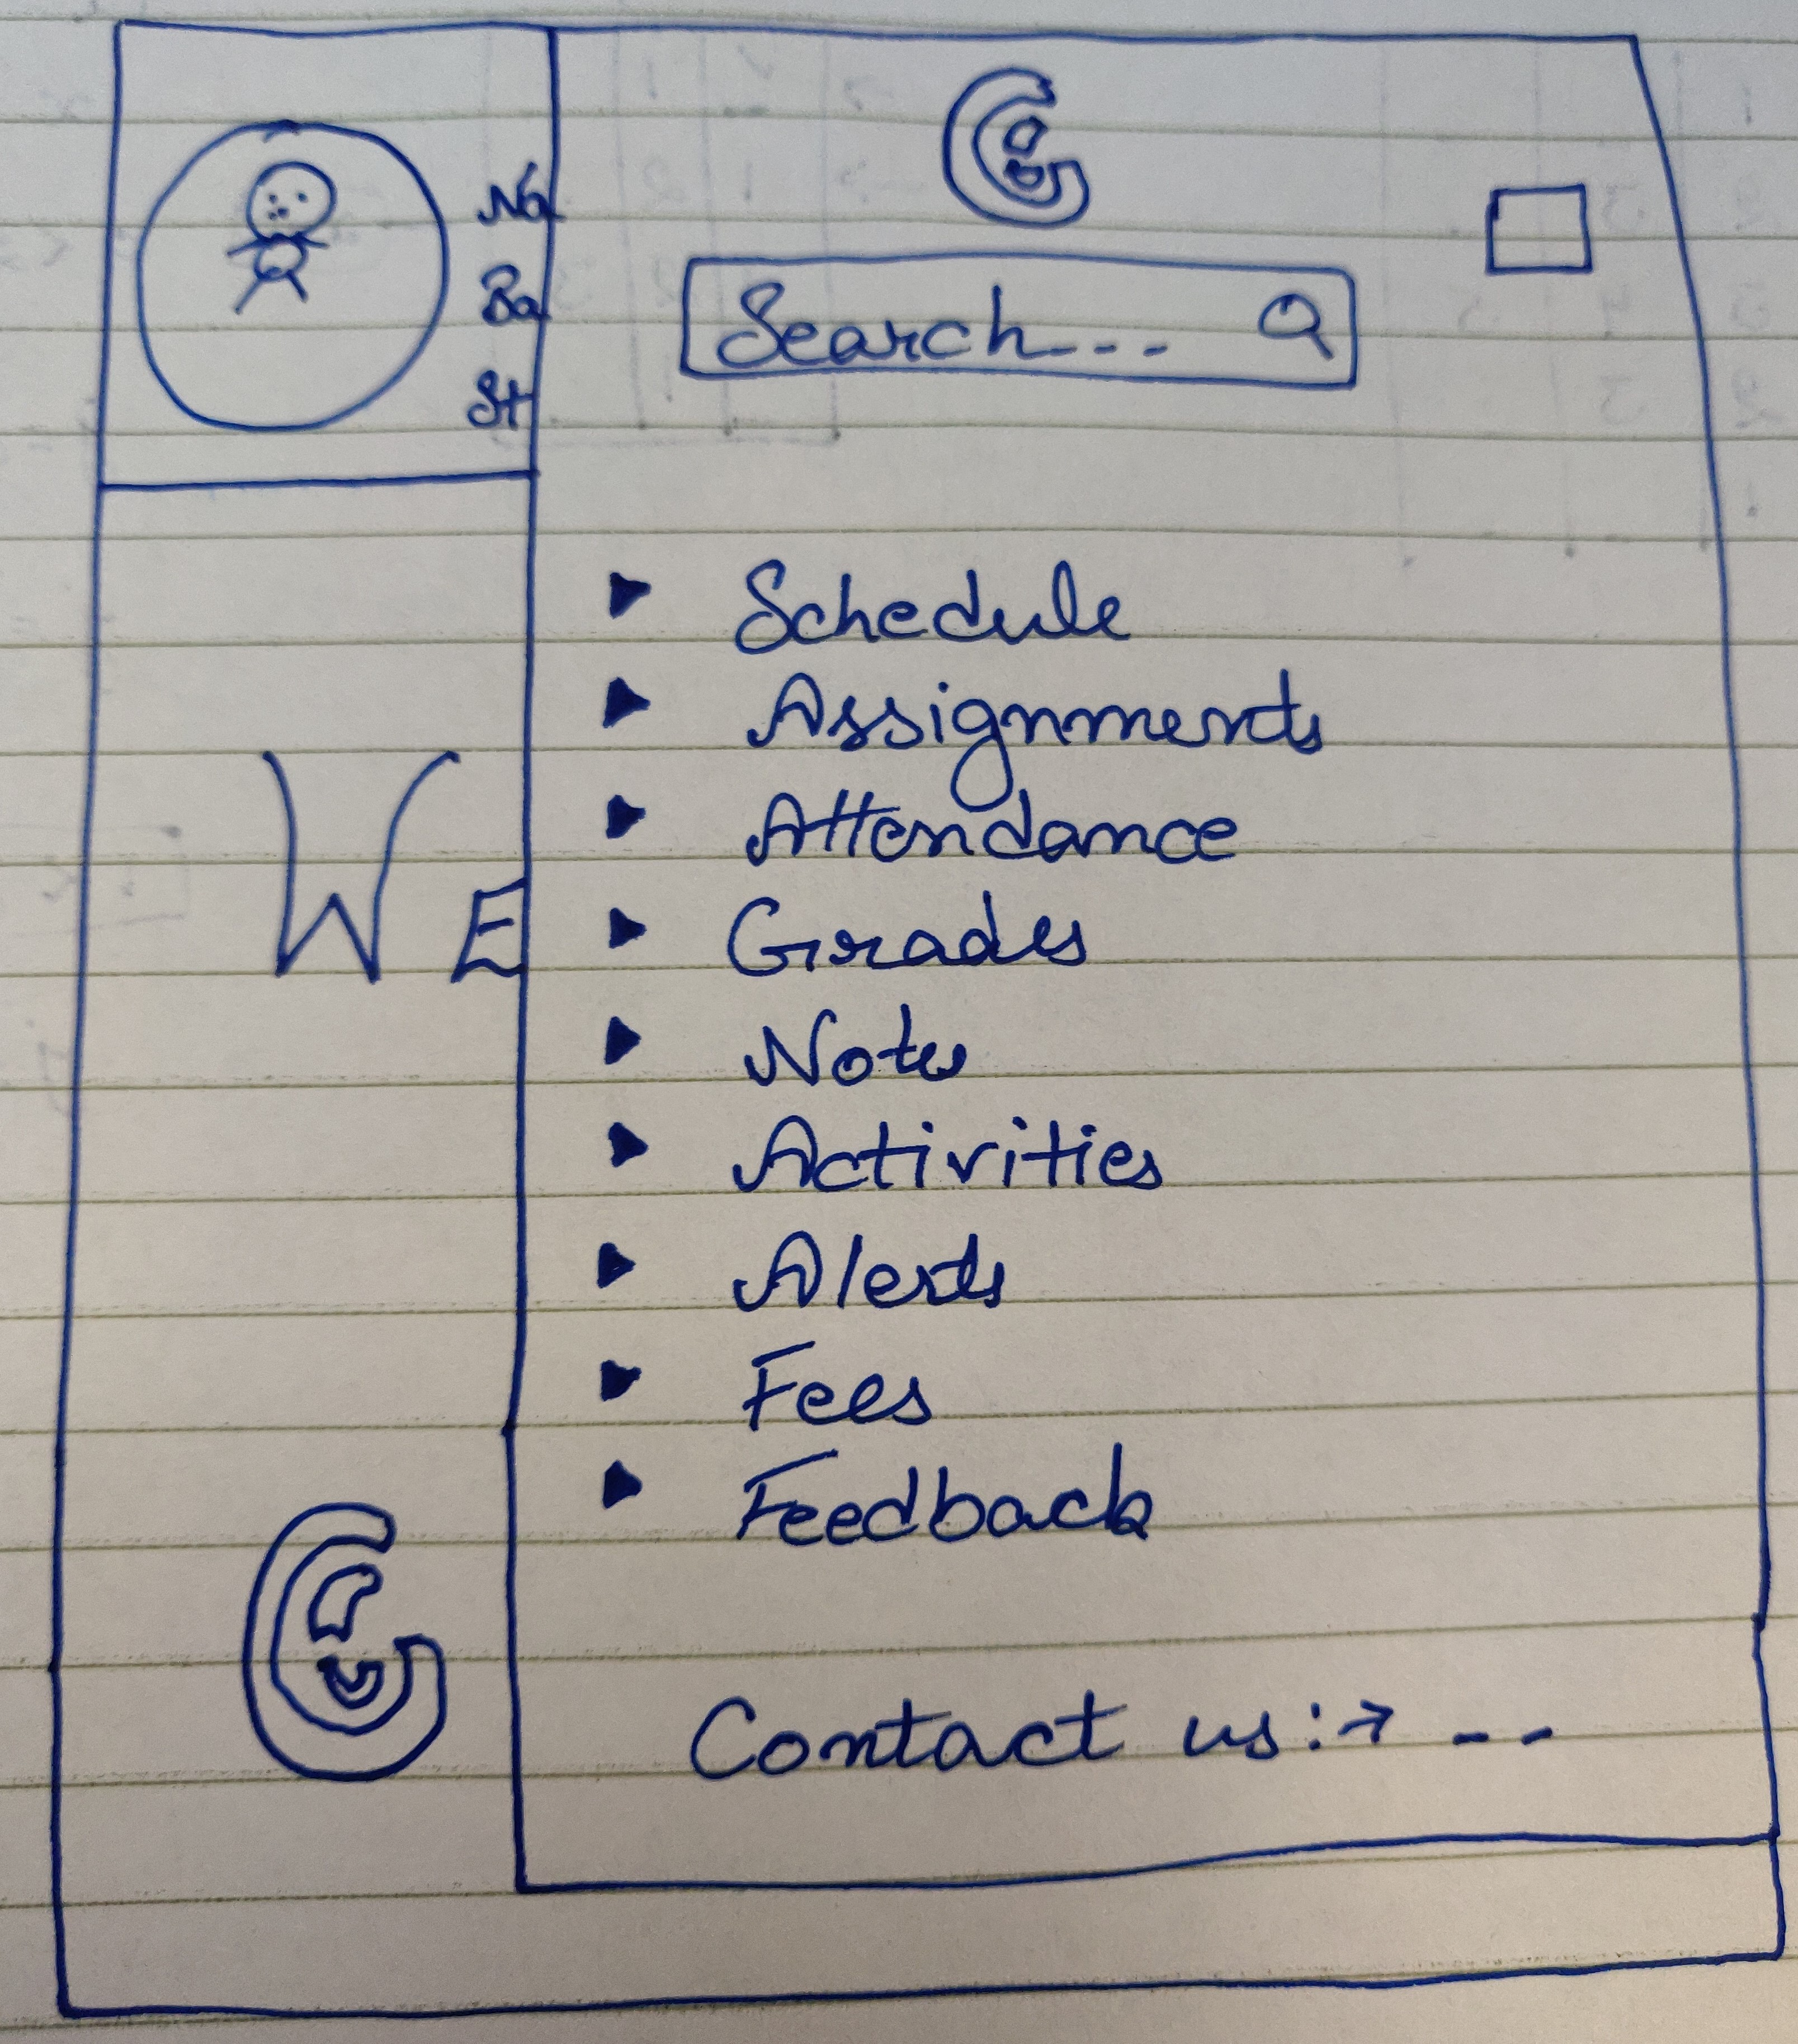 Na
Ba
St
Search...
Schedule
Assignments
Attendance
Grades
Notes
Activities
Alerts
Fees
Feedback
W E
Contact us:→ --